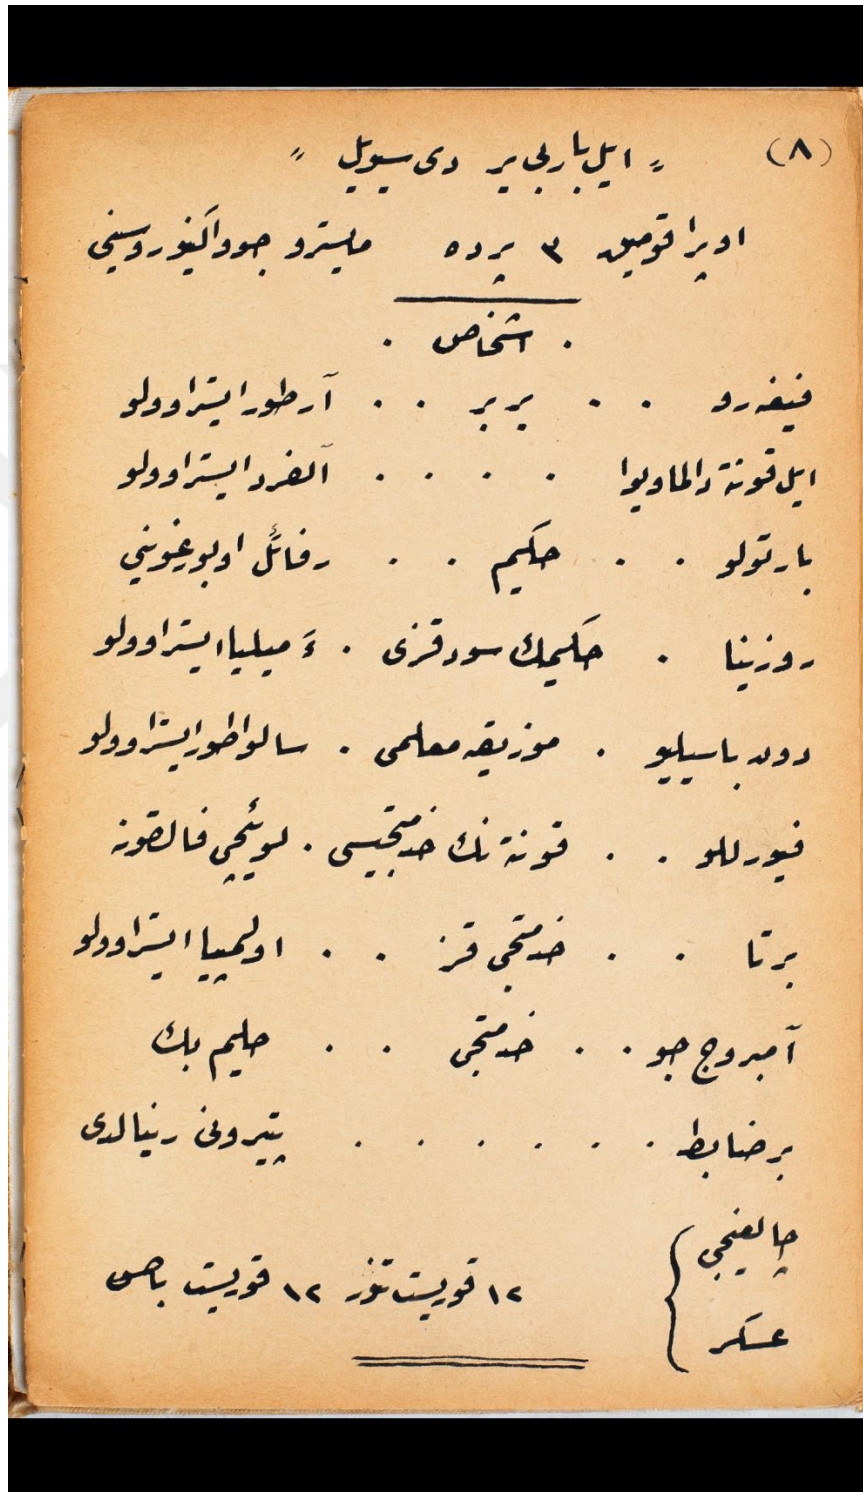 (٨) « ایل باربی یر دی سیویل »
اوپرا قومیق ٣ پرده مایسترو جوواکینو روسینی
٠ اشخاص ٠
فیغه رو ٠ ٠ بربر ٠ ٠ آرطور ایستراوولو
ایل قونته دالماویوا ٠ ٠ ٠ ٠ آلفرد ایستراوولو
بارتولو ٠ ٠ حکیم ٠ ٠ رفائل اوبورغونی
روزینا ٠ حکیمك سود قزی ٠ ءَ میلیا ایستراوولو
دون باسیلیو ٠ موزیقه معلمی ٠ سالواطور ایستراوولو
فیورللو ٠ ٠ قونته نك خدمتجیسی ٠ لوئیجی فالقونه
برتا ٠ ٠ خدمتجی قز ٠ ٠ اولمپیا ایستراوولو
آمبروج جو ٠ ٠ خدمتجی ٠ ٠ حلیم بك
بر ضابط ٠ ٠ ٠ ٠ ٠ ٠ پتیرونی رینالدی
چالغیجی
١٢ قوریست تنور ١٢ قوریست باص
عسکر